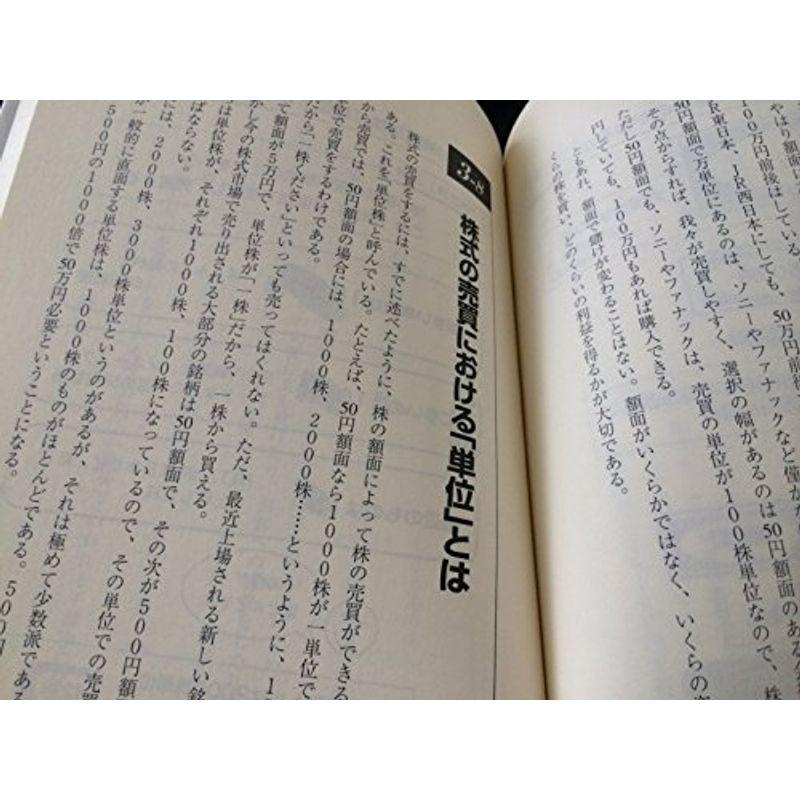 やはり額面に
100万円前後はしている。
JR東日本、JR西日本にしても、50万円前後
50円額面で万単位にあるのは、ソニーやファナックなど僅かな
その点からすれば、我々が売買しやすく、選択の幅があるのは50円額面のある
ただし50円額面でも、ソニーやファナックは、売買の単位が100株単位なので、株
円していても、100万円もあれば購入できる。
ともあれ、額面で儲けが変わることはない。額面がいくらかではなく、いくらの
くらの株を買い、どのくらいの利益を得るかが大切である。
3-8
株式の売買における「単位」とは
株式の売買をするには、すでに述べたように、株の額面によって株の売買ができる
ある。これを「単位株」と呼んでいる。たとえば、50円額面なら1000株が一単位で
から売買では、50円額面の場合には、1000株、2000株……というように、10
単位で売買をするわけである。
だから「一株ください」といっても売ってはくれない。ただ、最近上場される新しい銘
て額面が5万円で、単位株が「一株」だから、一株から買える。
かし今の株式市場で売り出される大部分の銘柄は50円額面で、その次が500円額
は単位株が、それぞれ1000株、100株になっているので、その単位での売買
ばならない。
には、2000株、3000株単位というのがあるが、それは極めて少数派である
が一般的に直面する単位株は、1000株のものがほとんどである。500円
500円の1000倍で50万円必要ということになる。